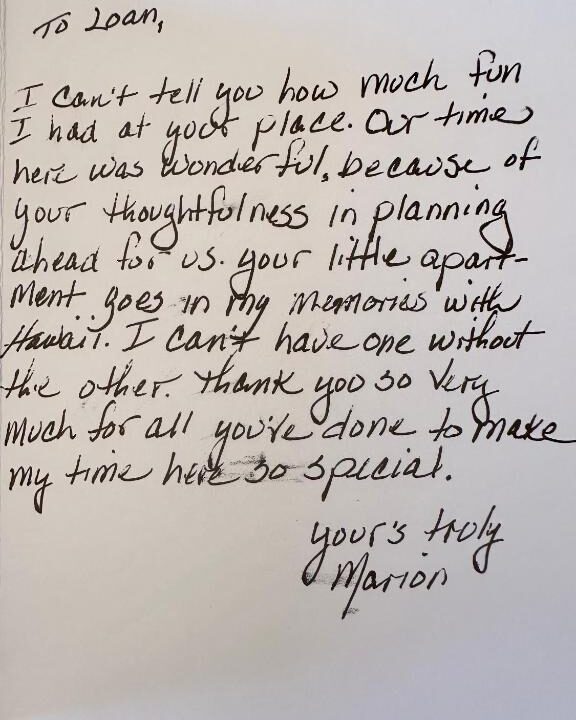 To Loan,
I can't tell you how much fun
I had at your place. Our time
here was wonderful, because of
your thoughtfulness in planning
ahead for us. your little apart-
ment goes in my memories with
Hawaii. I can't have one without
the other. Thank you so very
much for all you've done to make
my time here so special.
your's truly
Marion